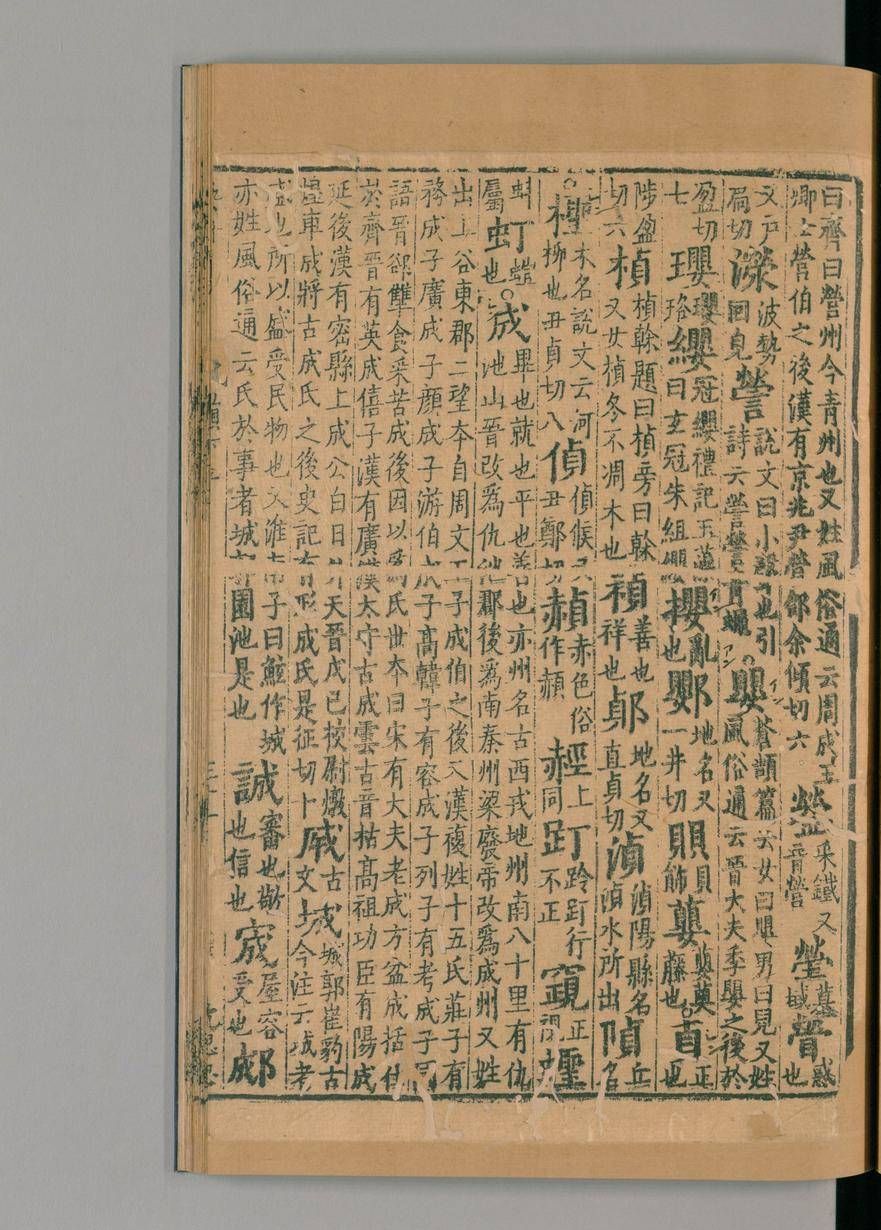 曰齊曰營州今青州也又姓風俗通云周成王卿士營伯之後漢有京兆尹營郃余傾切六 鎣 采鐵又音營 塋 墓域 䁝 惑也
又戶扃切 濴 波勢回皃 謍 說文曰小聲也引詩云謍謍青蠅 ○嬰 蒼頡篇云女曰嬰男曰皃又姓風俗通云晉大夫季嬰之後於
盈切七 瓔 瓔珞 纓 冠纓禮記玉藻曰玄冠朱組纓 攖 亂也 地名又一井切 賏 貝飾 蘡 蘡薁藤也 ○貞 正也
陟盈切六 楨 楨榦題曰楨旁曰榦又女楨冬不凋木也 禎 善也祥也 地名又直貞切 湞 湞陽縣名湞水所出 丘名
○檉 木名說文云河柳也丑貞切八 偵 偵候又丑鄭切 赬 赤色俗作頳 䞓 上同 跉行不正 竀 正視 蟶
蚌屬 虰 蜻也 ○成 畢也就也平也善也亦州名古西戎地州南八十里有仇池山晉改爲仇池郡後爲南秦州梁廢帝改爲成州又姓
出上谷東郡二望本自周文王子成伯之後又漢複姓十五氏莊子有務成子廣成子顏成子游伯成子高韓子有容成子列子有考成子國
語晉郤犨食采苦成後因以爲氏世本曰宋有大夫老成方盆成括仕於齊晉有英成僖子漢有廣漢太守古成雲古音枯高祖功臣有陽成
延後漢有密縣上成公白日升天晉戊己校尉燉煌車成將古成氏之後史記有形成氏是征切十 古文 城 城郭崔豹古今注云城者
盛也所以盛受民物也又淮南子曰鯀作城亦姓風俗通云氏於事者城郭園池是也 誠 審也敬也信也 宬 屋容受也 郕